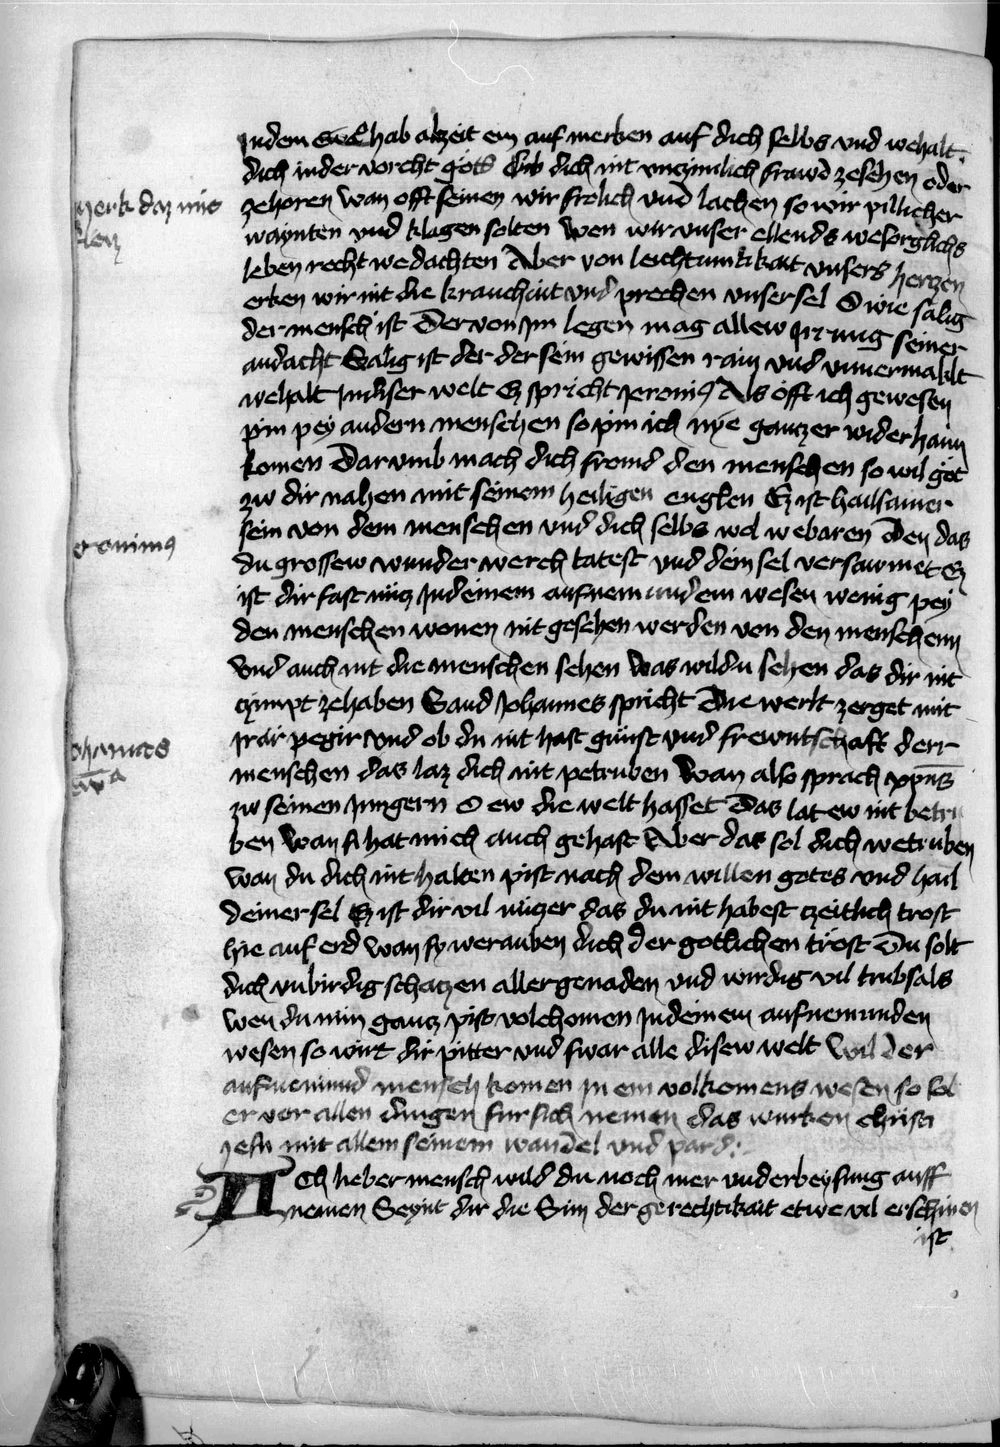 Jndem hab alzeit ein auf merken auf dich selbs vnd wehalt
dich inder vorcht gots Gib dich nit vnczimlich frawd zesehen oder
zehoren wan offt seinen wir frolich vnd lachen so wir pillicher
waynten vnd klagen solten Wen wir vnser ellends wesorglichs
leben recht wedachten Aber von leichtumkikait vnsers herczen
erken wir nit die kranchait vnd prechen vnser sel O wie salig
der mensch ist Der von ym legen mag allew irrung seiner
andacht Salig ist der der sein gewissen rain vnd vnuermaklt
wehalt Jndiser welt Ez spricht Jeronimus Als offt ich gewesen
pim pey andern menschen so pim ich nye ganczer wider haim
komen Darvmb mach dich fromd den menschen so wil got
zw dir nahen mit seinem heiligen englen Ez ist hailsamer
sein von dem menschen vnd dich selbs wol webaren Den das
du grossew wunder werch tatest vnd dein sel versawmet Ez
ist dir fast nucz Jndeinem aufnemundem wesen wenig pey
den menschen wonen nit gesehen werden von den menschenn
Vnd auch nit die menschen sehen Was wildu sehen das dir nit
czimpt zehaben Sand Johannes spricht Die werlt zerget mit
jrar pegir vnd ob du nit hast gunst vnd frewntschaft derr
menschen das laz dich nit petruben Wan also sprach xpus
zw seinen Jungern O ew die welt hasset Das lat ew nit betru
ben Wan si hat mich auch gehast Aber das sol dich wetruben
Wan du dich nit halten pist nach dem willen gotes vnd hail
deiner sel Ez ist dir vil nuczer das du nit habest czeitlich trost
hie auf erd Wan sy werauben dich der gotlichen trost Du solt
dich vnbirdig schaczen aller genaden vnd wirdig vil trubsals
Wen du nun gancz pist volchomen Jndeinem aufnemunden
wesen so wirt dir pitter vnd swar alle disew welt Wil der
aufnemund mensch komen in ein volkomens wesen so sol
er vor allen dingen fur sich nemen das wurken christi
jesu mit allem seinem wandel vnd
Och lieber mensch wild du noch mer vnderbeysung auff
nemen Seynt dir die Sun der gerechtikait etwe vil erschinen
ist
merk daz mit
fleiz
eronimus
ohannes